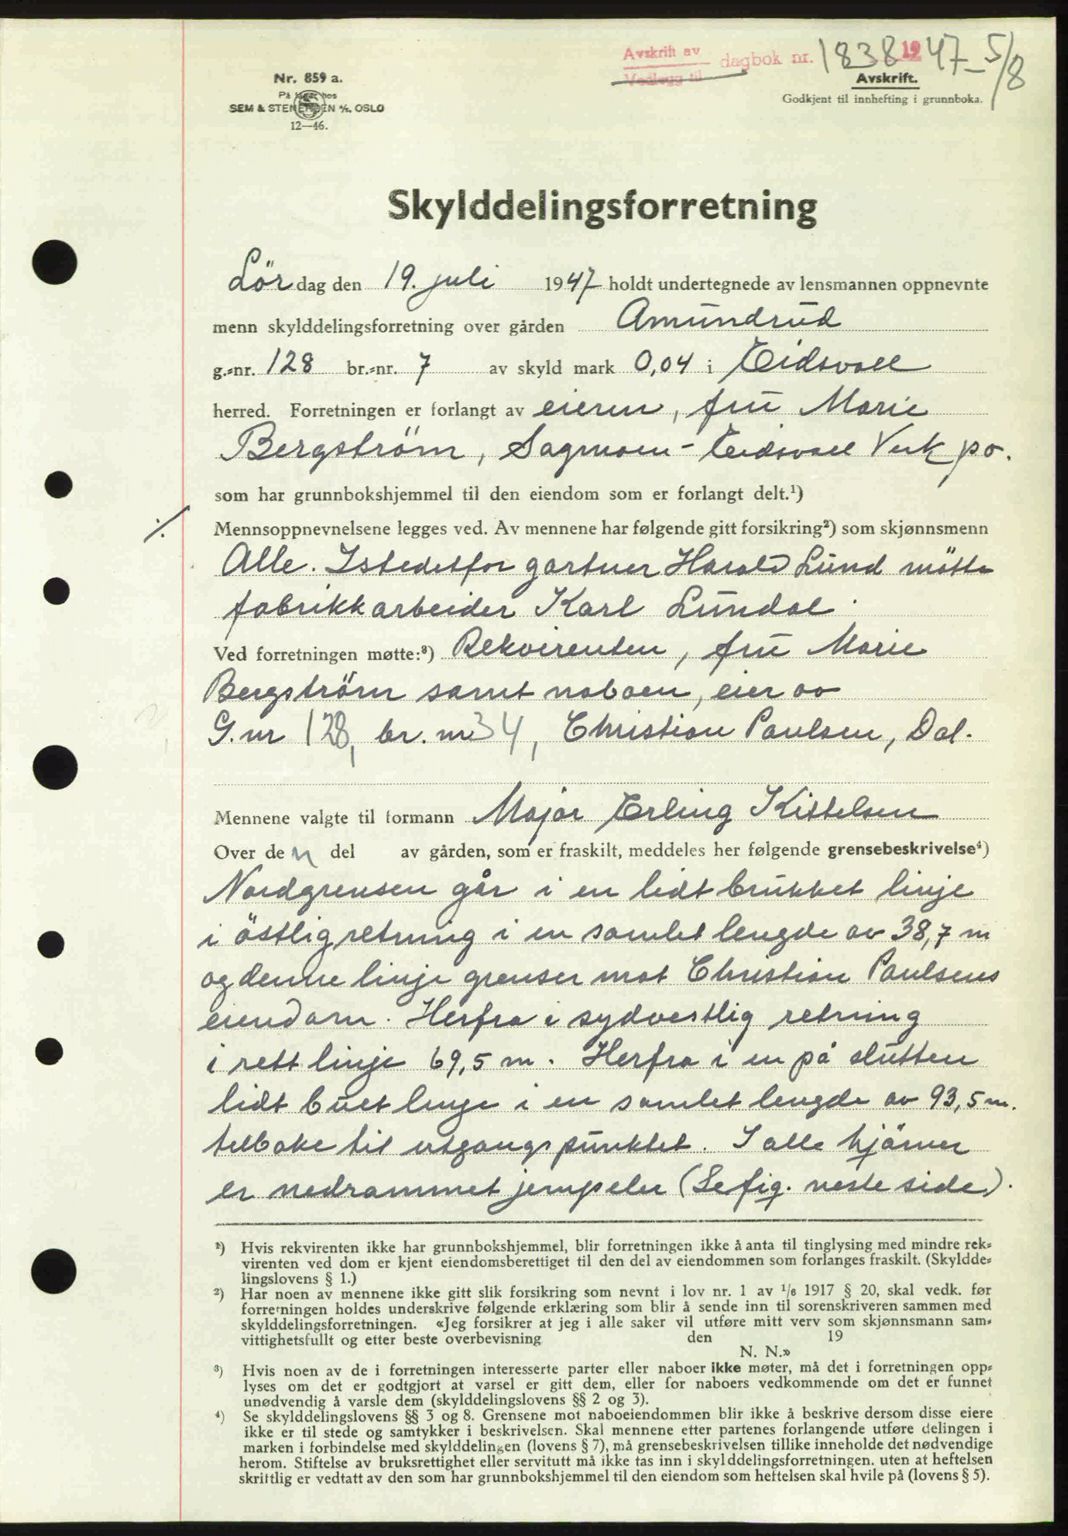 Avskrift av
Vedlegg til
dagbok nr. 1838 1947-5/8
Nr. 859 a.
På lager hos
SEM & STENERSEN A/S. OSLO
12—46.
Avskrift.
Godkjent til innhefting i grunnboka.
Skylddelingsforretning
Lørdag den 19. juli 1947 holdt undertegnede av lensmannen oppnevnte
menn skylddelingsforretning over gården Amundrud
g.-nr. 128 br.-nr. 7 av skyld mark 0,04 i Eidsvoll
herred. Forretningen er forlangt av eieren, fru Marie
Bergström, Sagmoen - Eidsvoll Verk po.
som har grunnbokshjemmel til den eiendom som er forlangt delt.¹)
./. Mennsoppnevnelsene legges ved. Av mennene har følgende gitt forsikring²) som skjønnsmenn
Alle. Istedetfor gartner Harald Lund møtte
fabrikkarbeider Karl Lundal.
Ved forretningen møtte:³) Rekvirenten, fru Marie
Bergström samt naboen, eier av
G.nr 128, br. nr 34, Christian Paulsen, Dal.
Mennene valgte til formann Major Erling Kittelsen
Over den del av gården, som er fraskilt, meddeles her følgende grensebeskrivelse⁴)
Nordgrensen går i en lidt brukket linje
i östlig retning i en samlet lengde av 38,7 m
og denne linje grenser mot Christian Paulsens
eiendom. Herfra i sydvestlig retning
i rett linje 69,5 m. Herfra i en på slutten
lidt buet linje i en samlet lengde av 93,5 m.
tilbake til utgangspunktet. I alle hjörner
er nedrammet jernpeler (Se fig. neste side).
¹) Hvis rekvirenten ikke har grunnbokshjemmel, blir forretningen ikke å anta til tinglysing med mindre rek-
virenten ved dom er kjent eiendomsberettiget til den del av eiendommen som forlanges fraskilt. (Skyldde-
lingslovens § 1.)
²) Har noen av mennene ikke gitt slik forsikring som nevnt i lov nr. 1 av 1/6 1917 § 20, skal vedk. før
forretningen holdes underskrive følgende erklæring som blir å sende inn til sorenskriveren sammen med
skylddelingsforretningen. «Jeg forsikrer at jeg i alle saker vil utføre mitt verv som skjønnsmann sam-
vittighetsfullt og etter beste overbevisning den 19
N. N.»
³) Hvis noen av de i forretningen interesserte parter eller naboer ikke møter, må det i forretningen opp-
lyses om det er godtgjort at varsel er gitt dem, eller for naboers vedkommende om det er funnet
unødvendig å varsle dem (skylddelingslovens §§ 2 og 3).
⁴) Se skylddelingslovens §§ 3 og 8. Grensene mot naboeiendommen blir ikke å beskrive dersom disse eiere
ikke er til stede og samtykker i beskrivelsen. Skal mennene etter partenes forlangende utføre delingen i
marken i forbindelse med skylddelingen (lovens § 7), må grensebeskrivelsen tillike inneholde det nødvendige
herom. Stiftelse av bruksrettighet eller servitutt må ikke tas inn i skylddelingsforretningen. uten at heftelsen
skriftlig er vedtatt av den som har grunnbokshjemmel til den eiendom som heftelsen skal hvile på (lovens § 5).